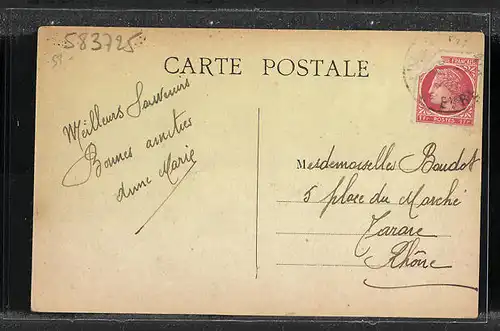 583725
CARTE POSTALE
FRANÇAIS
1F POSTES 1F
Meilleurs Souvenirs
Bonnes amitiés
Anne Marie
Mesdemoiselles Baudot
5 place du Marché
Tarare
Rhône